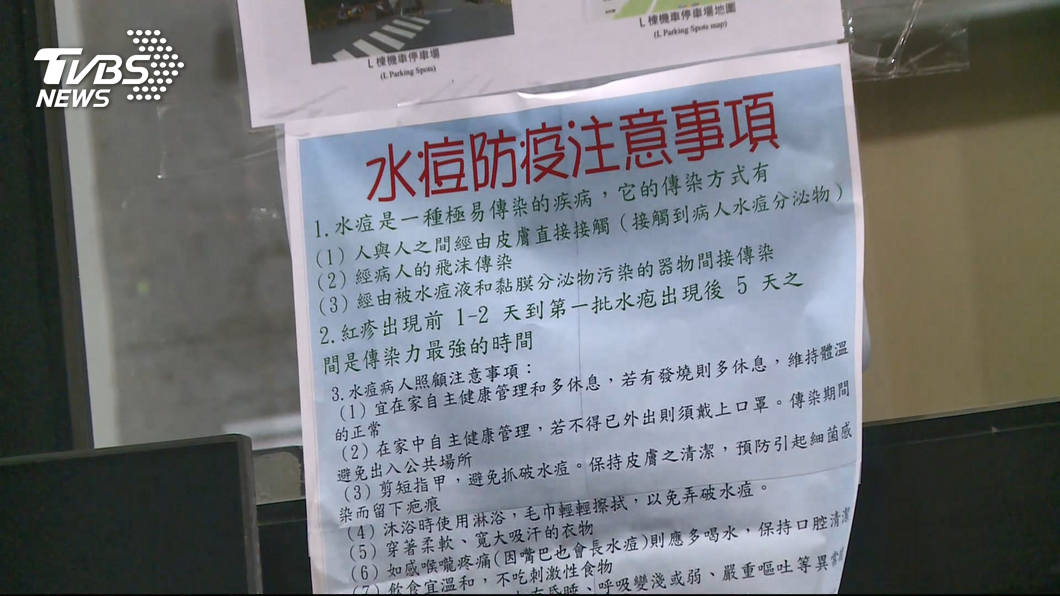 TVBS
NEWS
L 棟機車停車場
(L Parking Spots)
L 棟機車停車場地圖
(L Parking Spots map)
水痘防疫注意事項
1.水痘是一種極易傳染的疾病，它的傳染方式有
(1) 人與人之間經由皮膚直接接觸 (接觸到病人水痘分泌物)
(2) 經病人的飛沫傳染
(3) 經由被水痘液和黏膜分泌物污染的器物間接傳染
2.紅疹出現前 1-2 天到第一批水疱出現後 5 天之
間是傳染力最強的時間
3.水痘病人照顧注意事項：
(1) 宜在家自主健康管理和多休息，若有發燒則多休息，維持體溫
的正常
(2) 在家中自主健康管理，若不得已外出則須戴上口罩。傳染期間
避免出入公共場所
(3) 剪短指甲，避免抓破水痘。保持皮膚之清潔，預防引起細菌感
染而留下疤痕
(4) 沐浴時使用淋浴，毛巾輕輕擦拭，以免弄破水痘。
(5) 穿著柔軟、寬大吸汗的衣物
(6) 如感喉嚨疼痛(因嘴巴也會長水痘)則應多喝水，保持口腔清潔
(7) 飲食宜溫和，不吃刺激性食物
昏睡、呼吸變淺或弱、嚴重嘔吐等異常